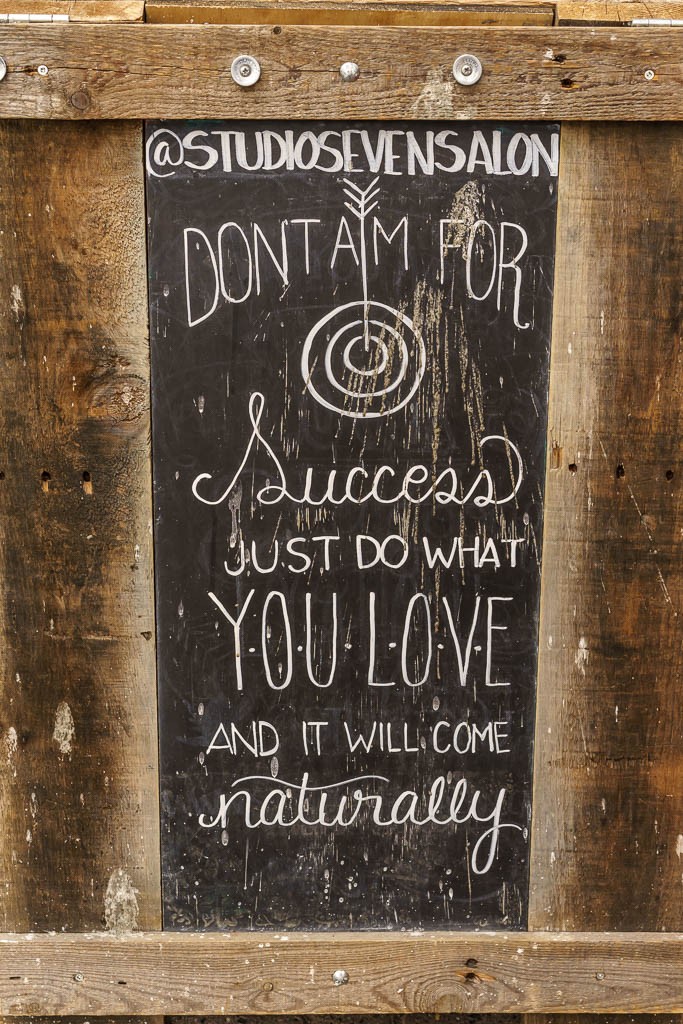 @STUDIOSEVENSALON
DONT AIM FOR
Success
JUST DO WHAT
Y·O·U L·O·V·E
AND IT WILL COME
naturally